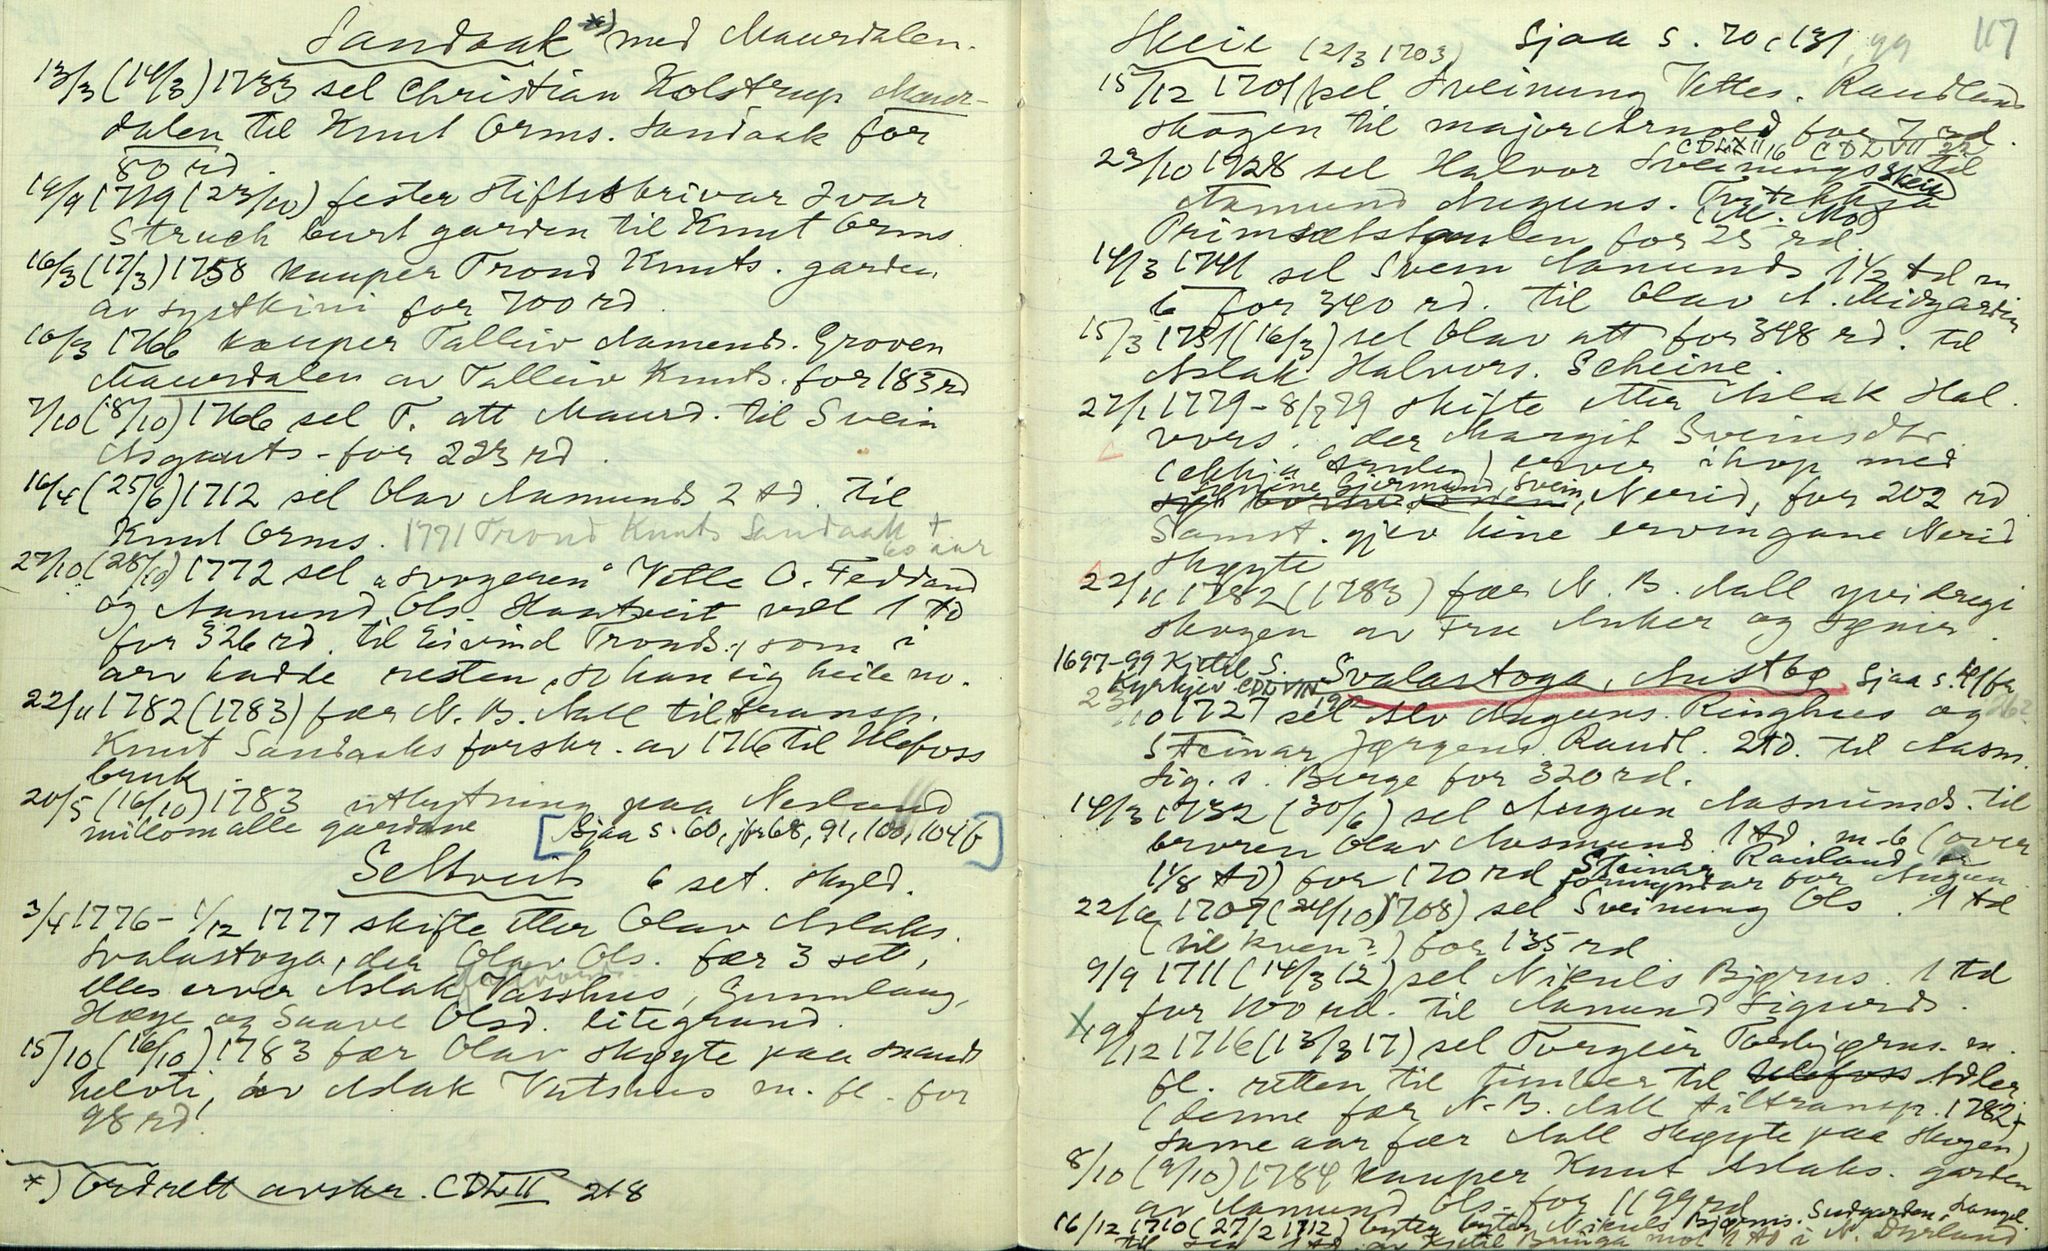 Sandaak *) med Maurdalen.
13/3 (14/3) 1733 sel Christian Kolstrup Maur-
dalen til Knut Orms. Sandaak for
80 rd.
19/9 1719 (23/10) fester stiftsskrivar Ivar
Struch burt garden til Knut Orms.
16/3 (17/3) 1758 kauper Trond Knuts. garden
av systkini for 700 rd.
16/3 1766 kauper Talleiv Aamunds. Groven
Maurdalen av Talleiv Knuts. for 183 rd
7/10 (8/10) 1766 sel T. att Maurd. til Svein
Asgauts. for 223 rd.
16/4 (25/6) 1712 sel Olav Aamunds 2 td. til
Knut Orms. 1791 Trond Knuts Sandaak +
60 aar
27/10 (28/10) 1772 sel "svogeren" Vetle O. Feddand
og Aamund Ols. Haatveit vel 1 td
for 326 rd. til Eivind Tronds., som i
arv hadde resten, so han eig heile no.
22/11 1782 (1783) fær N. B. Aall tiltransp.
Knut Sandaaks forskr. av 1716 til Ulefoss
bruk
20/5 (16/10) 1783 utbytning paa Nesland
millom alle gardane [Sjaa s. 60, jfr 68, 91, 100, 104 f]
Seltveit 6 set. skyld.
3/4 1776 - 1/12 1777 skifte etter Olav Aslaks.
Svalastoga, der Olav Ols. fær 3 set.,
elles erver Aslak Vasshus, Gunnlaug,
Hæge og Saave Olsd. litegrand.
15/10 (16/10) 1783 fær Olav skøyte paa
helvti, av Aslak Vatshus m. fl. for
98 rd.
*) Ordrett avskr. CDL II 218
117
Skeie (2/3 1703) Sjaa s. 70, 131, 99
15/12 1701 sel Sveinung Vetles. Raudland
skogen til major Arnold for 7 rd.
CDL XII 16 CDL VII 22
23/10 1728 sel Halvor Sveinungs. Skeie til
Aamund Auguns.
Primsætstaulen for 25 rd
14/3 1741 sel Svein Aamunds 1 1/2 td m
6 for 340 rd. til Olav A. Midgarden
15/3 1751 (16/3) sel Olav att for 348 rd. til
Aslak Halvors. Scheine.
27/1 1779 - 8/7 79 skifte etter Aslak Hal-
vors., der Margit Sveinsdtr.
(ekkja) erver ihop med
Svein, Neerid, for 202 rd
Samst. gjev hine ervingane Nerid
skøyte
22/11 1782 (1783) fær N. B. Aall yverdregi
skogen av Fru Anker og Søner.
1697-99 Kjetil S. Svalastoga, Austbø Sjaa s.
Kyrkjev. CDL VIII 192
23/10 1727 sel Alv Auguns. Ringhus og
Steinar Jørgens. Raudl. 2 td. til Aasm.
Sig. s. Berge for 320 rd.
14/3 1732 (30/6) sel Augun Aasmunds. til
broren Olav Aasmunds. 1 td. m. 6 (over
1 1/8 td) for 170 rd Steinar Rauland er
formyndar for Augun.
1707 (24/10 1708) sel Sveinung Ols. 1 td
(til kven?) for 135 rd
9/9 1711 (14/3 12) sel Nikuls Bjørns. 1 td
for 100 rd. til Aamund Sigurds.
19/12 1716 (13/3 17) sel Torgeir Torbjørns. m.
fl. retten til timber til Ulefoss Adler
(denne fær N. B. Aall tiltransp. 1782 +
same aar fær Aall skøyte paa skogen)
8/10 (9/10) 1784 kauper Knut Aslaks. garden
av Aamund Ols. for 1199 rd
16/12 1710 (27/2 1712) byter Nikuls Bjørns. Sudgarden
til seg 1 td. av Kjetil Bringa mot 1 td i N. Dyrland